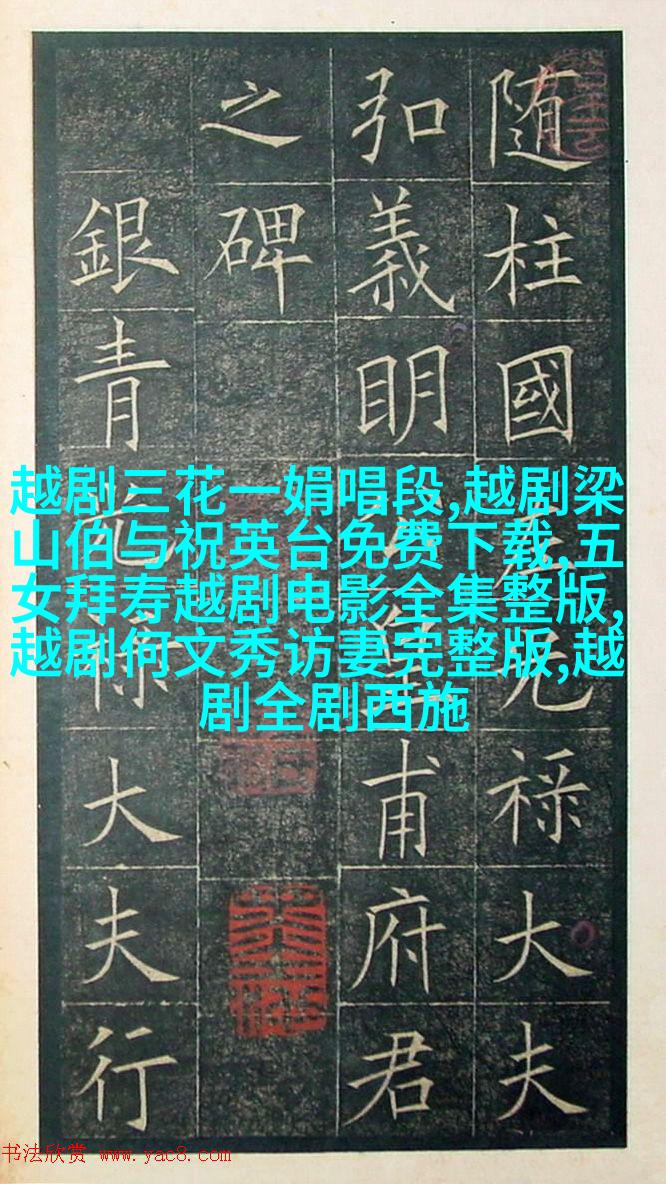 随柱國光禄大夫
弘義明皇甫府君
之碑
銀青光禄大夫行
越剧三花一娟唱段,越剧梁
山伯与祝英台免费下载,五
女拜寿越剧电影全集整版,
越剧何文秀访妻完整版,越
剧全剧西施
书法欣赏 www.yac8.com